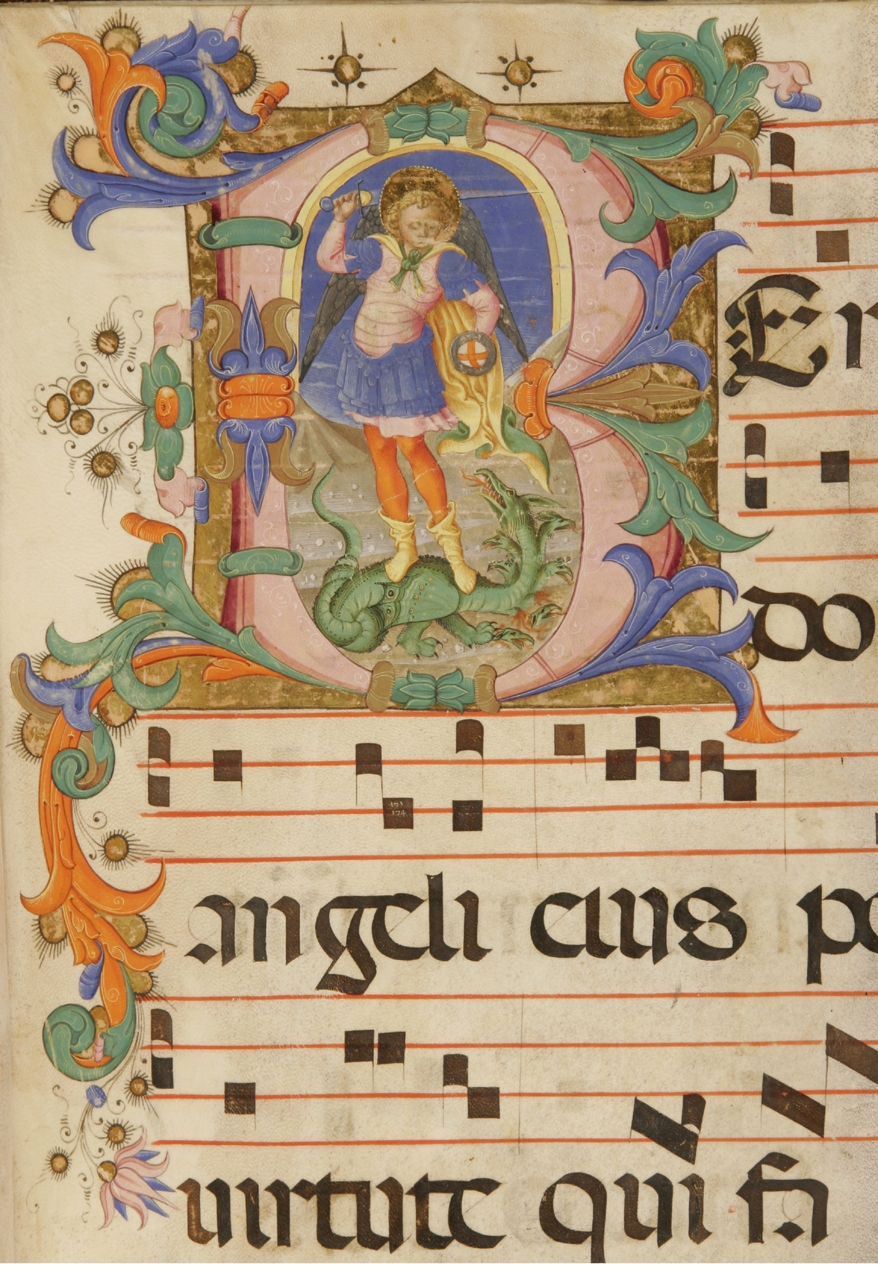 BEn
do
angeli eius po
uirtute qui fa